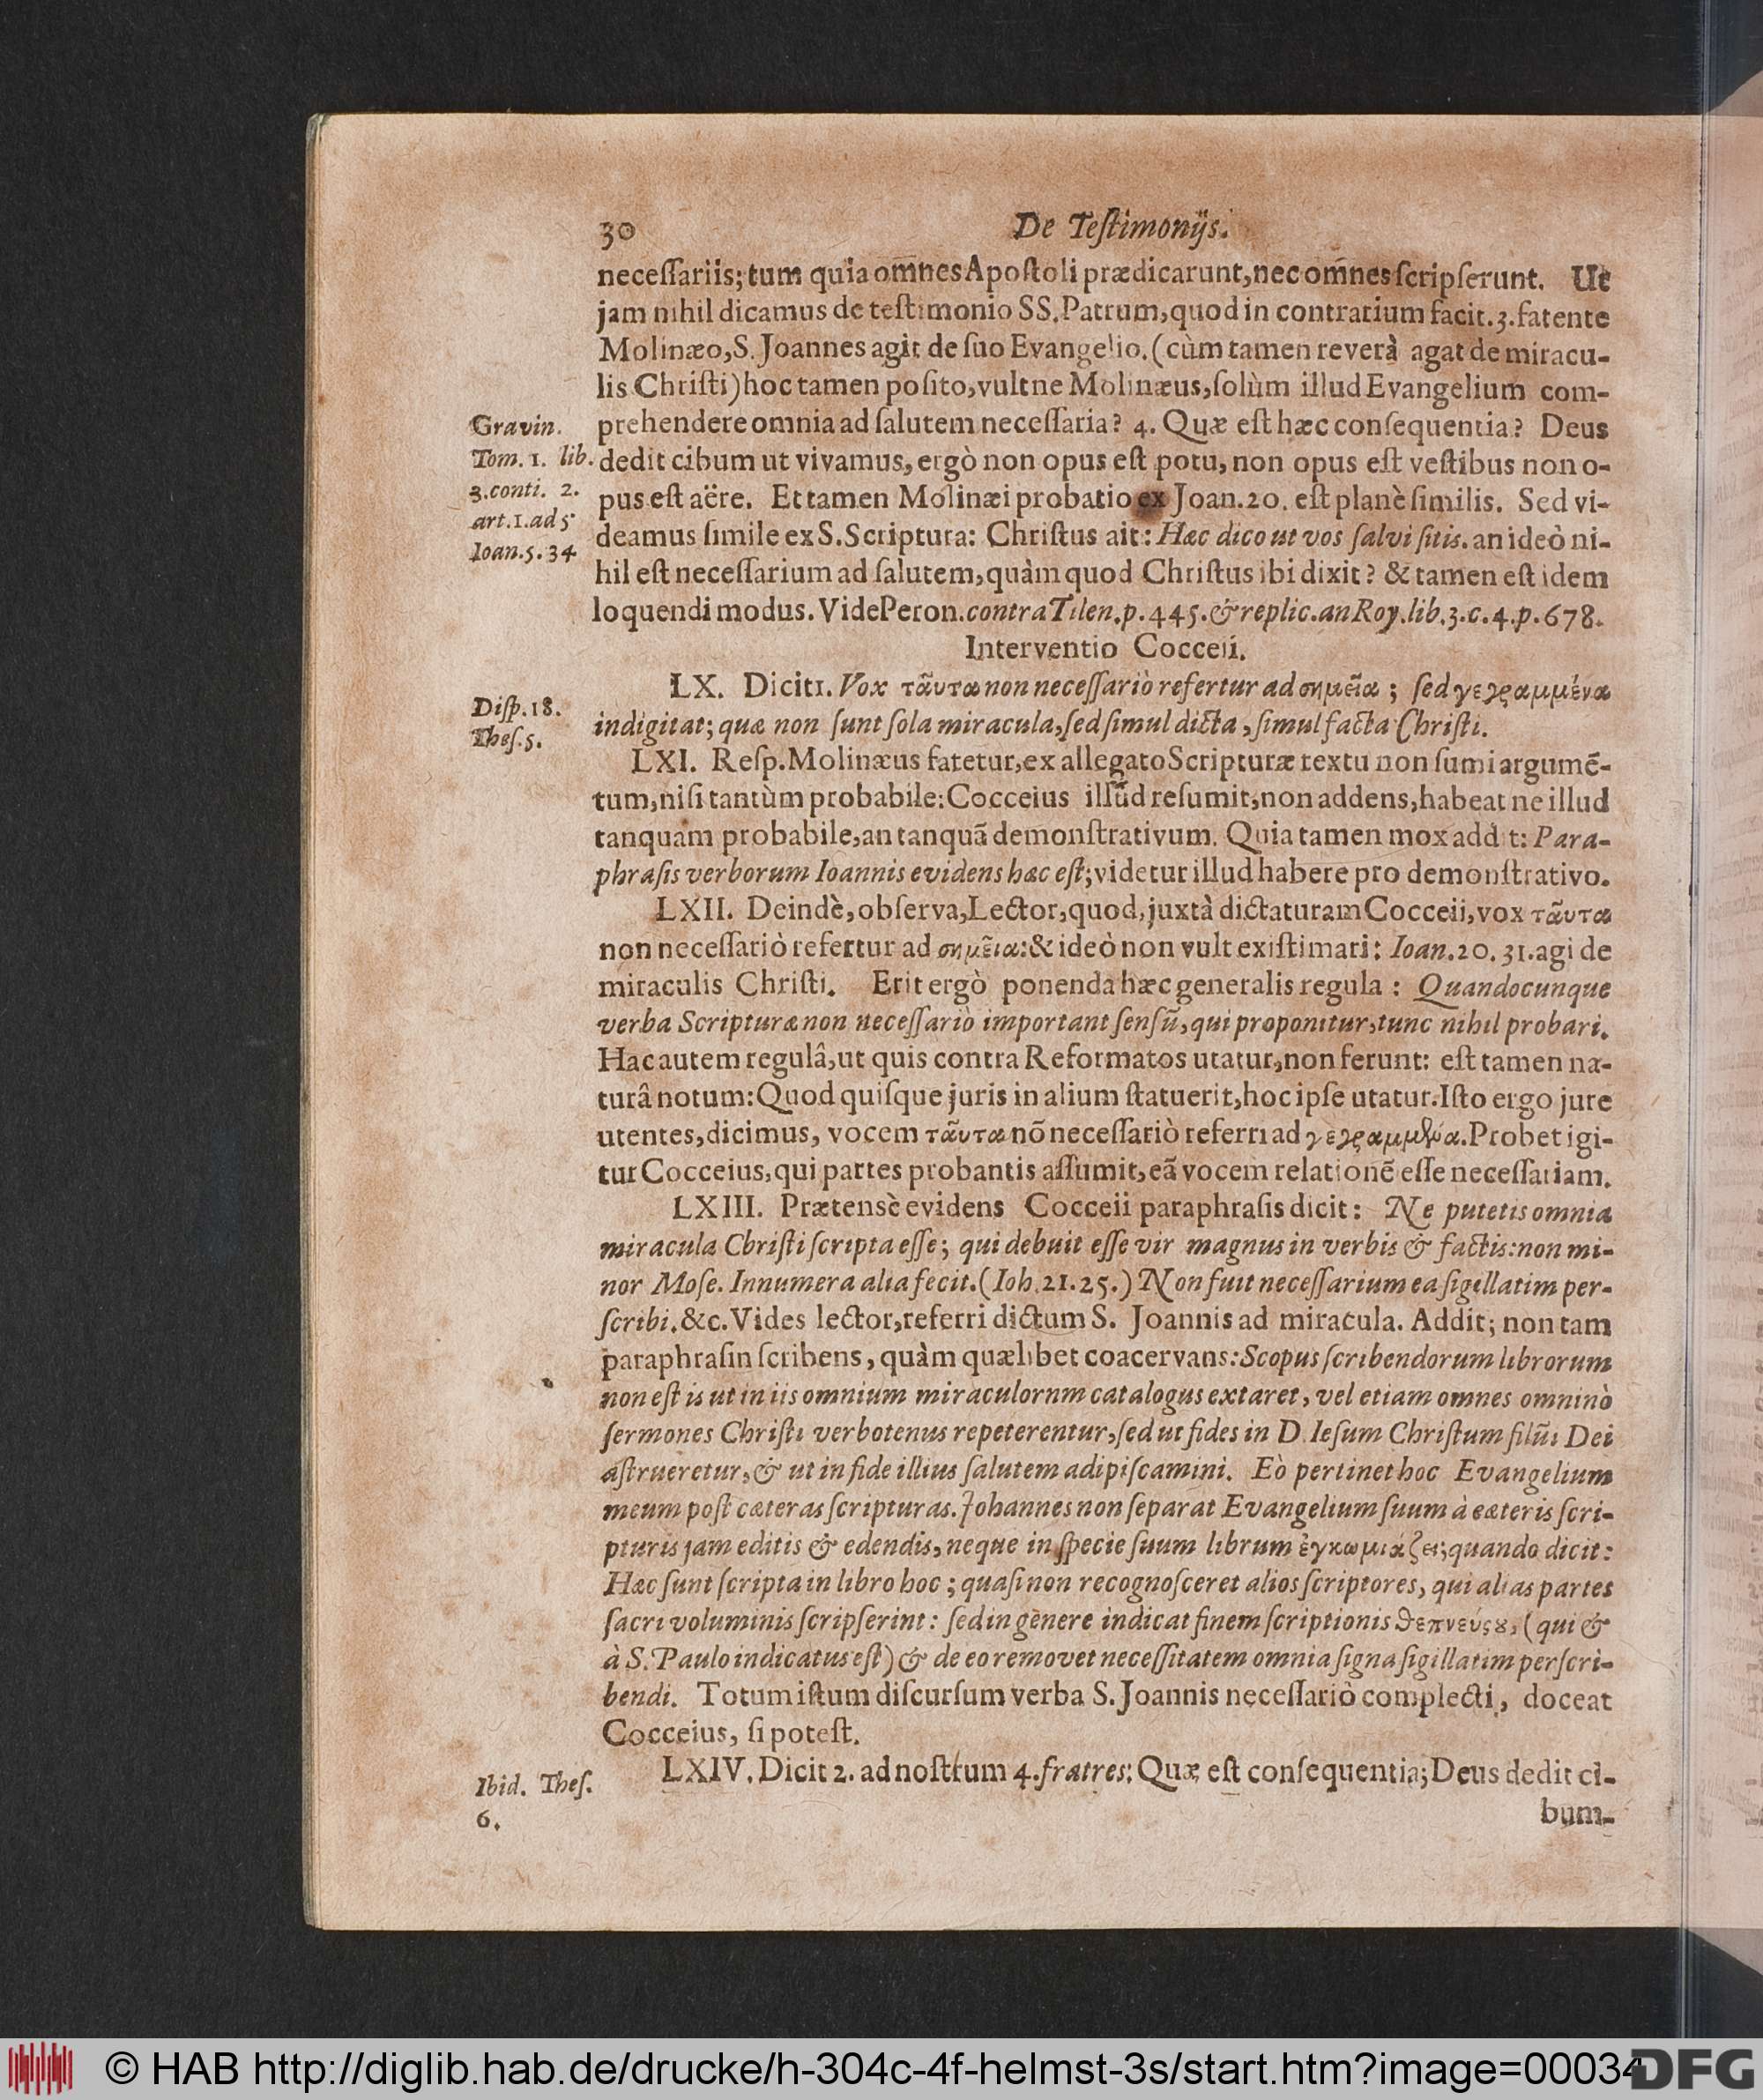 30 De Teſtimonijs.
neceſſariis; tum quia om̃nes Apoſtoli prædicarunt, nec om̃nes ſcripſerunt. Ut
jam nihil dicamus de teſtimonio SS. Patrum, quod in contrarium facit. 3. fatente
Molinæo, S. Joannes agit de ſuo Evangelio. (cùm tamen reverà agat de miracu-
lis Chriſti) hoc tamen poſito, vultne Molinæus, ſolùm illud Evangelium com-
Gravin.
Tom. 1. lib.
3. conti. 2.
art. 1. ad 5.
Ioan. 5. 34
prehendere omnia ad ſalutem neceſſaria? 4. Quæ eſt hæc conſequentia? Deus
dedit cibum ut vivamus, ergò non opus eſt potu, non opus eſt veſtibus non o-
pus eſt aëre. Et tamen Molinæi probatio ex Joan. 20. eſt planè ſimilis. Sed vi-
deamus ſimile ex S. Scriptura: Chriſtus ait: Hæc dico ut vos ſalvi ſitis. an ideò ni-
hil eſt neceſſarium ad ſalutem, quàm quod Chriſtus ibi dixit? & tamen eſt idem
loquendi modus. Vide Peron. contra Tilen. p. 445. & replic. an Roy. lib. 3. c. 4. p. 678.
Interventio Cocceii.
Diſp. 18.
Theſ. 5.
LX. Dicit 1. Vox ταῦτα non neceſſariò refertur ad σημεῖα; ſed γεγραμμένα
indigitat; quæ non ſunt ſola miracula, ſed ſimul dicta, ſimul facta Chriſti.
LXI. Reſp. Molinæus fatetur, ex allegato Scripturæ textu non ſumi argumẽ-
tum, niſi tantùm probabile: Cocceius illud reſumit, non addens, habeat ne illud
tanquam probabile, an tanquã demonſtrativum. Quia tamen mox addit: Para-
phraſis verborum Ioannis evidens hæc eſt; videtur illud habere pro demonſtrativo.
LXII. Deindè, obſerva, Lector, quod, juxtà dictaturam Cocceii, vox ταῦτα
non neceſſariò refertur ad σημεῖα: & ideò non vult exiſtimari: Ioan. 20. 31. agi de
miraculis Chriſti. Erit ergò ponenda hæc generalis regula: Quandocunque
verba Scripturæ non neceſſariò important ſenſũ, qui proponitur, tunc nihil probari.
Hac autem regulâ, ut quis contra Reformatos utatur, non ferunt: eſt tamen na-
turâ notum: Quod quiſque juris in alium ſtatuerit, hoc ipſe utatur. Iſto ergo jure
utentes, dicimus, vocem ταῦτα nõ neceſſariò referri ad γεγραμμένα. Probet igi-
tur Cocceius, qui partes probantis aſſumit, eã vocem relationẽ eſſe neceſſariam.
LXIII. Prætensè evidens Cocceii paraphraſis dicit: Ne putetis omnia
miracula Chriſti ſcripta eſſe; qui debuit eſſe vir magnus in verbis & factis: non mi-
nor Moſe. Innumera alia fecit. (Ioh. 21. 25.) Non fuit neceſſarium ea ſigillatim per-
ſcribi. &c. Vides lector, referri dictum S. Joannis ad miracula. Addit; non tam
paraphraſin ſcribens, quàm quælibet coacervans: Scopus ſcribendorum librorum
non eſt is ut in iis omnium miraculornm catalogus extaret, vel etiam omnes omninò
ſermones Chriſti verbotenus repeterentur, ſed ut fides in D. Ieſum Chriſtum filiũ Dei
aſtrueretur, & ut in fide illius ſalutem adipiſcamini. Eò pertinet hoc Evangelium
meum poſt cæteras ſcripturas. Johannes non ſeparat Evangelium ſuum à cæteris ſcri-
pturis jam editis & edendis, neque in ſpecie ſuum librum ἐγκωμιάζει; quando dicit:
Hæc ſunt ſcripta in libro hoc; quaſi non recognoſceret alios ſcriptores, qui alias partes
ſacri voluminis ſcripſerint: ſed in genere indicat finem ſcriptionis θεπνεύςȣ, (qui &
à S. Paulo indicatus eſt) & de eo removet neceſſitatem omnia ſigna ſigillatim perſcri-
bendi. Totum iſtum diſcurſum verba S. Joannis neceſſariò complecti, doceat
Cocceius, ſi poteſt.
Ibid. Theſ.
6.
LXIV. Dicit 2. ad noſtrum 4. fratres: Quæ eſt conſequentia; Deus dedit ci-
bum-
© HAB http://diglib.hab.de/drucke/h-304c-4f-helmst-3s/start.htm?image=00034
DFG